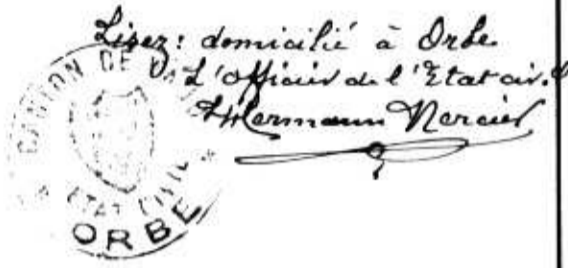 Lisez: domicilié à Orbe.
L'officier de l'Etat civ.
Hermann Mercier
CANTON DE
ETAT CIVIL
ORBE